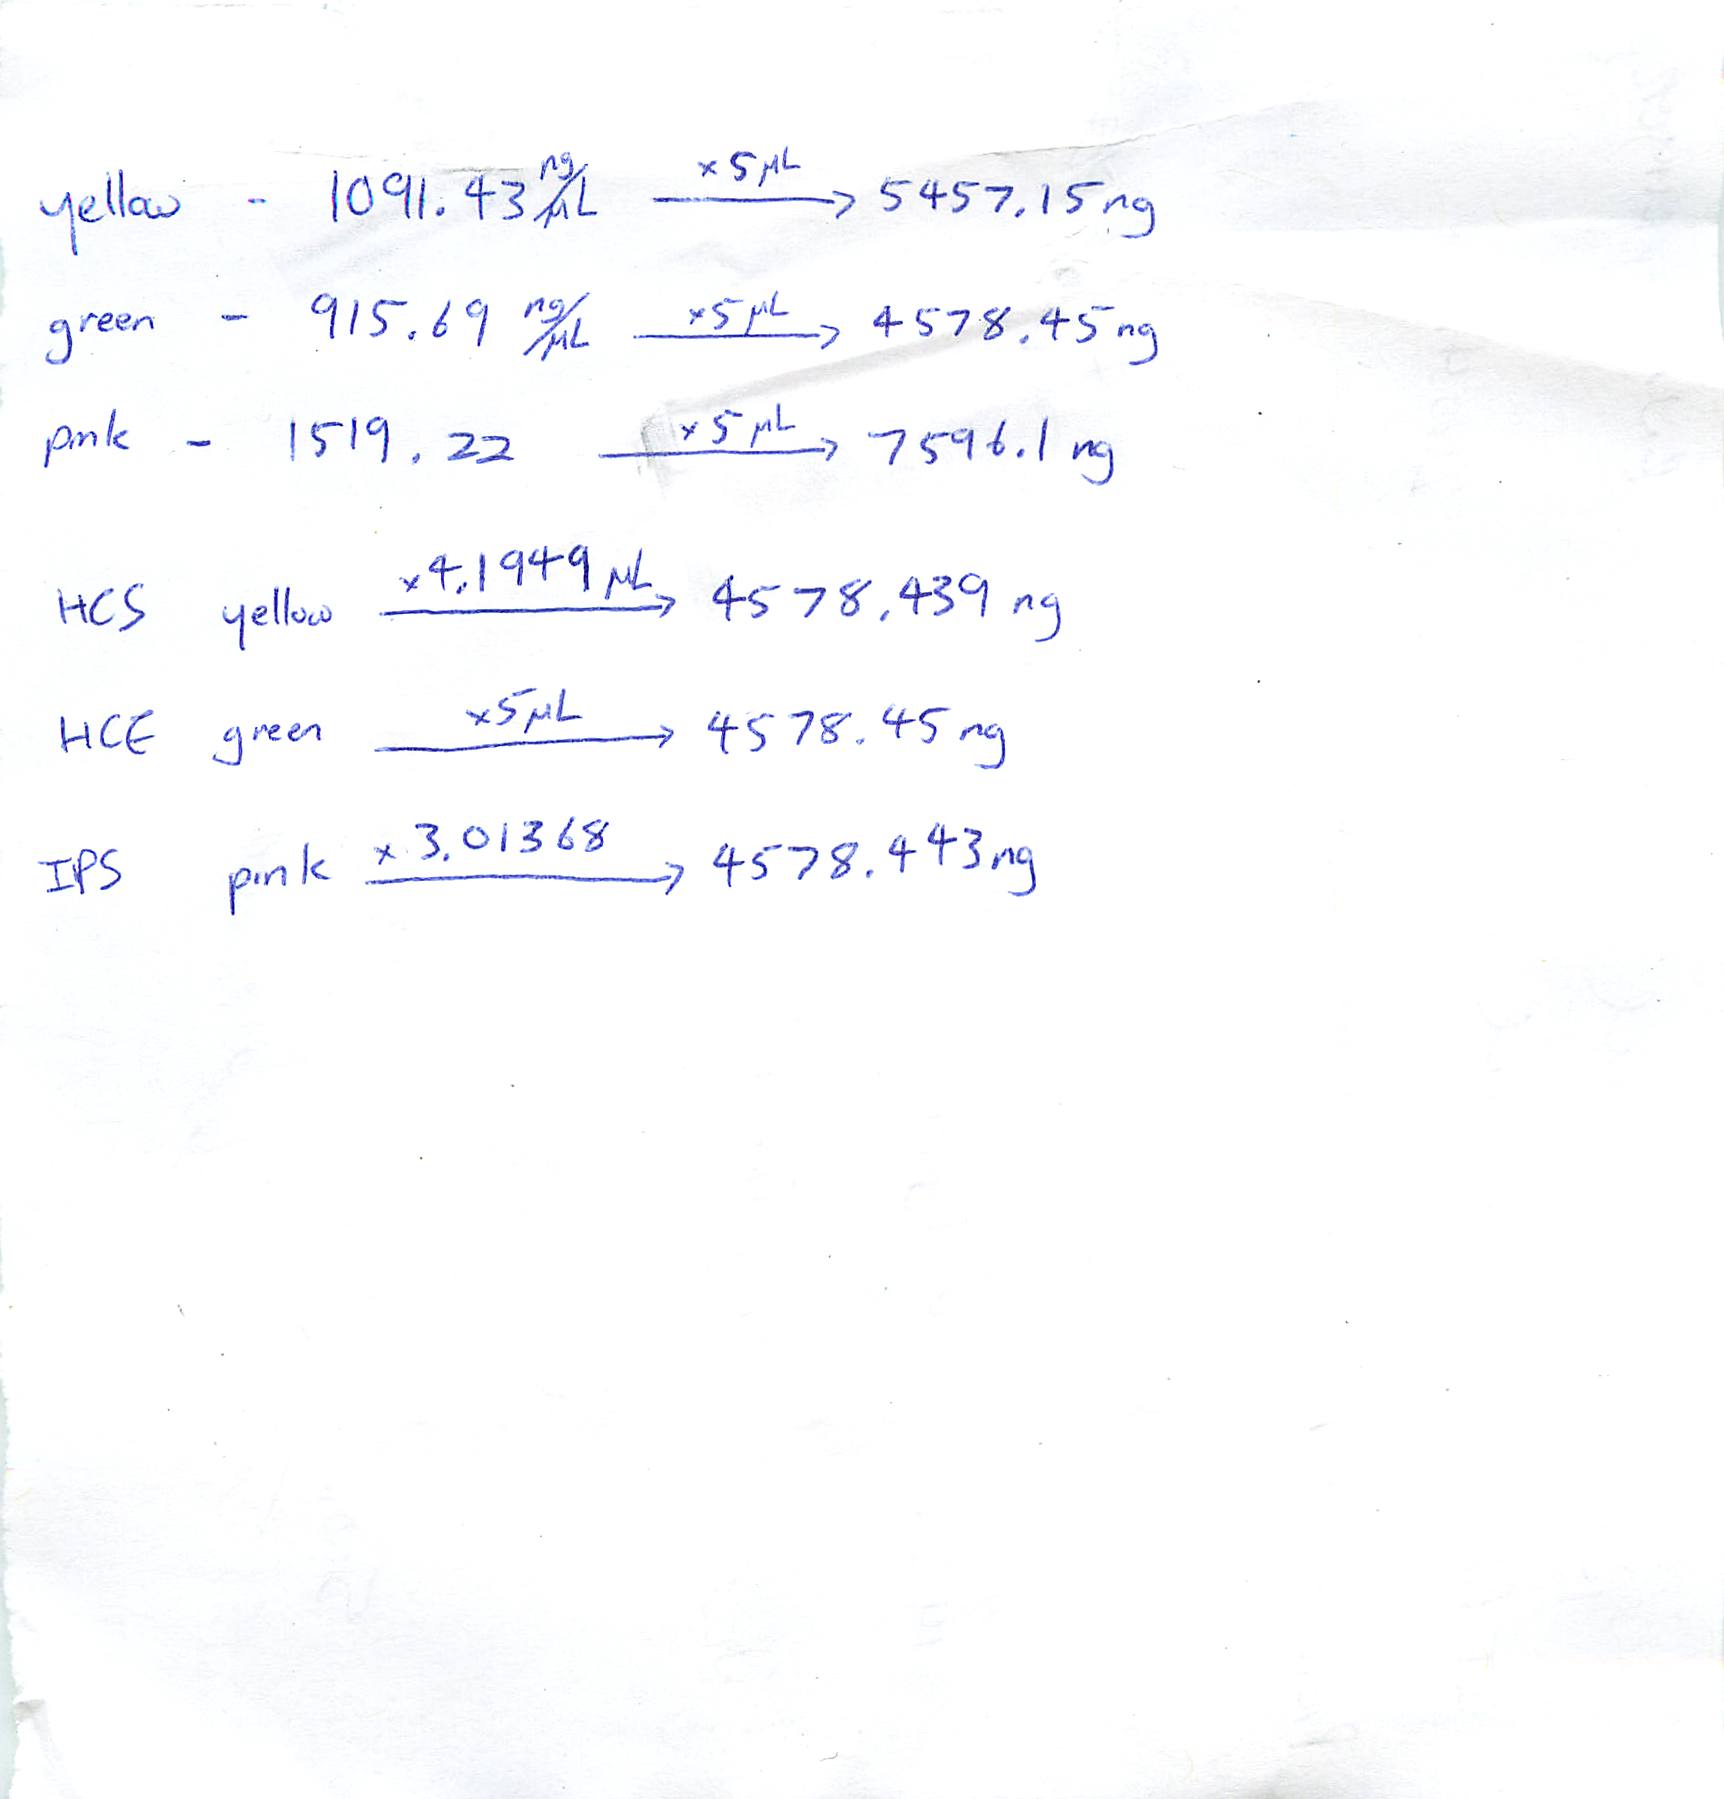 yellow - 1091.43 ng/µL ×5 µL → 5457.15 ng
green - 915.69 ng/µL ×5 µL → 4578.45 ng
pink - 1519.22 ×5 µL → 7596.1 ng
HCS yellow ×4.1949 µL → 4578.439 ng
HCE green ×5 µL → 4578.45 ng
IPS pink ×3.01368 → 4578.443 ng